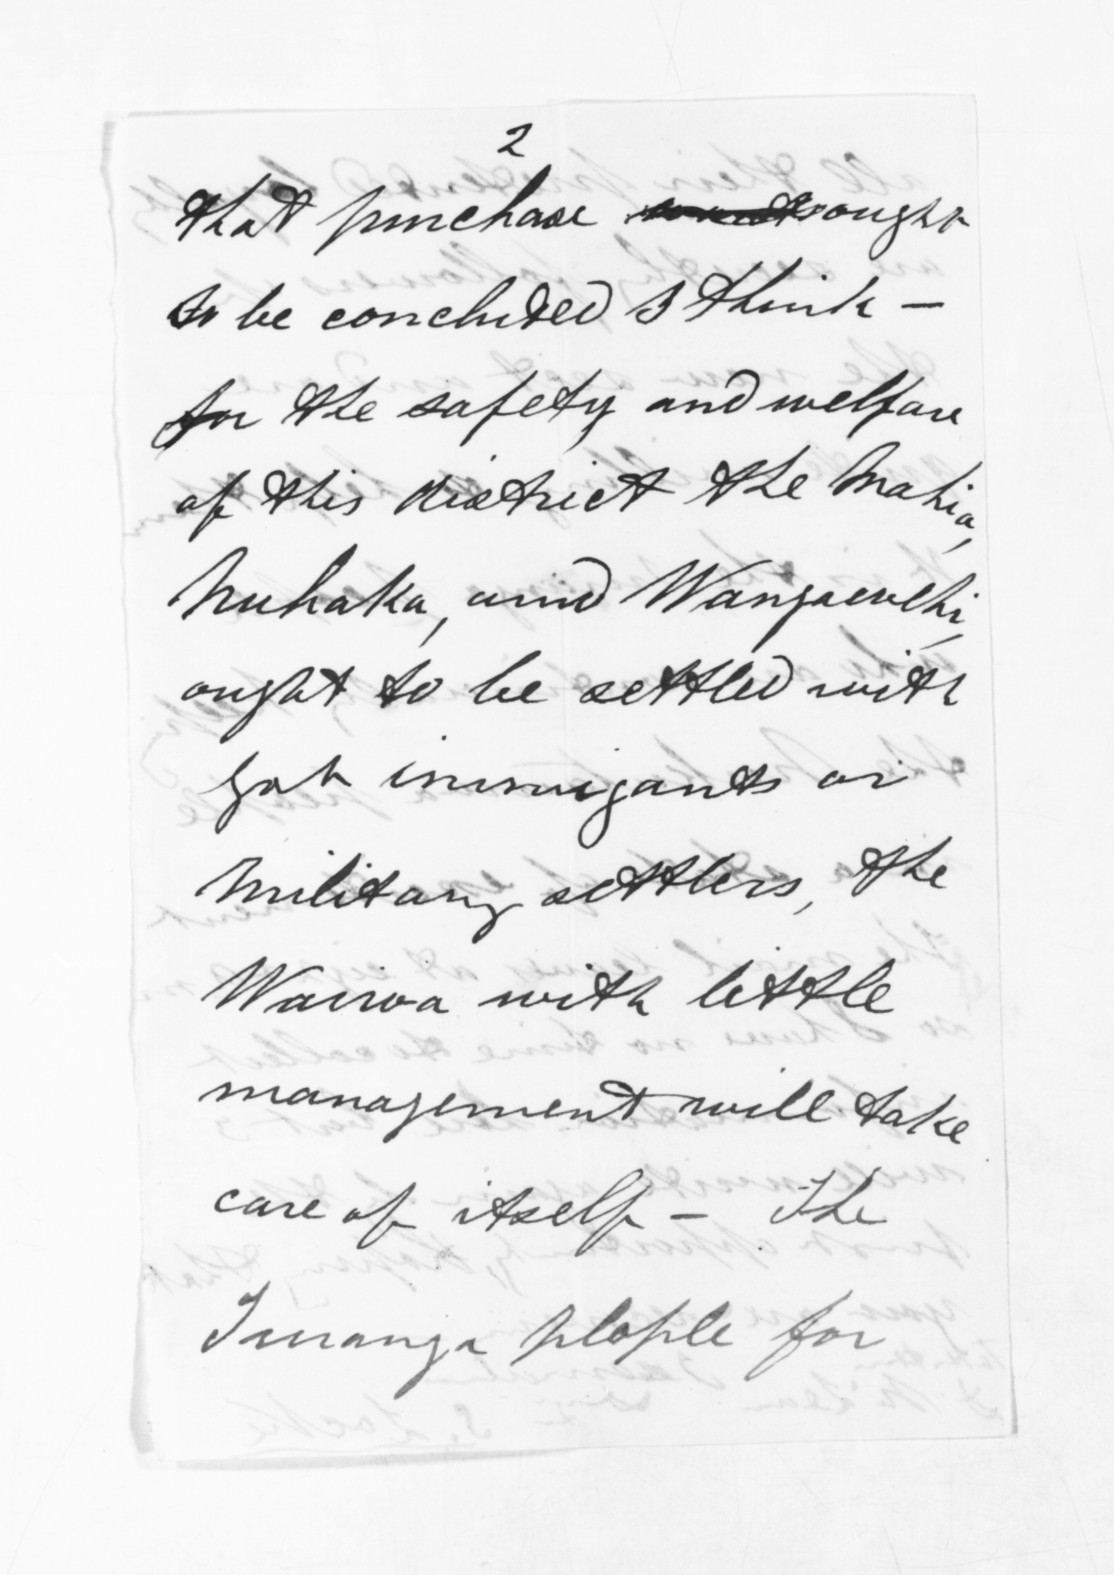 2
that purchase ought
to be concluded I think —
for the safety and welfare
of this district the Mahia,
Nuhaka, and
ought to be settled with
Govt immigants or
Military settlers, the
Wairoa with little
management will take
care of itself — The
Turanga people for